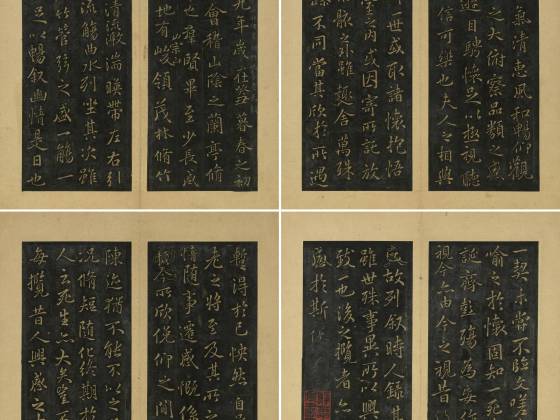 九年歲在癸丑暮春之初
會稽山陰之蘭亭脩
也羣賢畢至少長咸
地有崇山峻領茂林脩竹
清流激湍暎帶左右引
流觴曲水列坐其次雖
竹管弦之盛一觴一
足以暢敘幽情是日也
氣清惠風和暢仰觀
之大俯察品類之盛
遊目騁懷足以極視聽
信可樂也夫人之相與
一世或取諸懷抱悟
室之內或因寄所託放
骸之外雖趣舍萬殊
躁不同當其欣於所遇
暫得於己怏然自
老之將至及其所之
情隨事遷感慨係
向之所欣俛仰之間
陳迹猶不能不以之
況脩短隨化終期於
人云死生亦大矣豈不
每攬昔人興感之
一契未嘗不臨文嗟
喻之於懷固知一死
誕齊彭殤為妄作
視今亦由今之視昔
故列敘時人錄
雖世殊事異所以興
致一也後之攬者
感於斯文